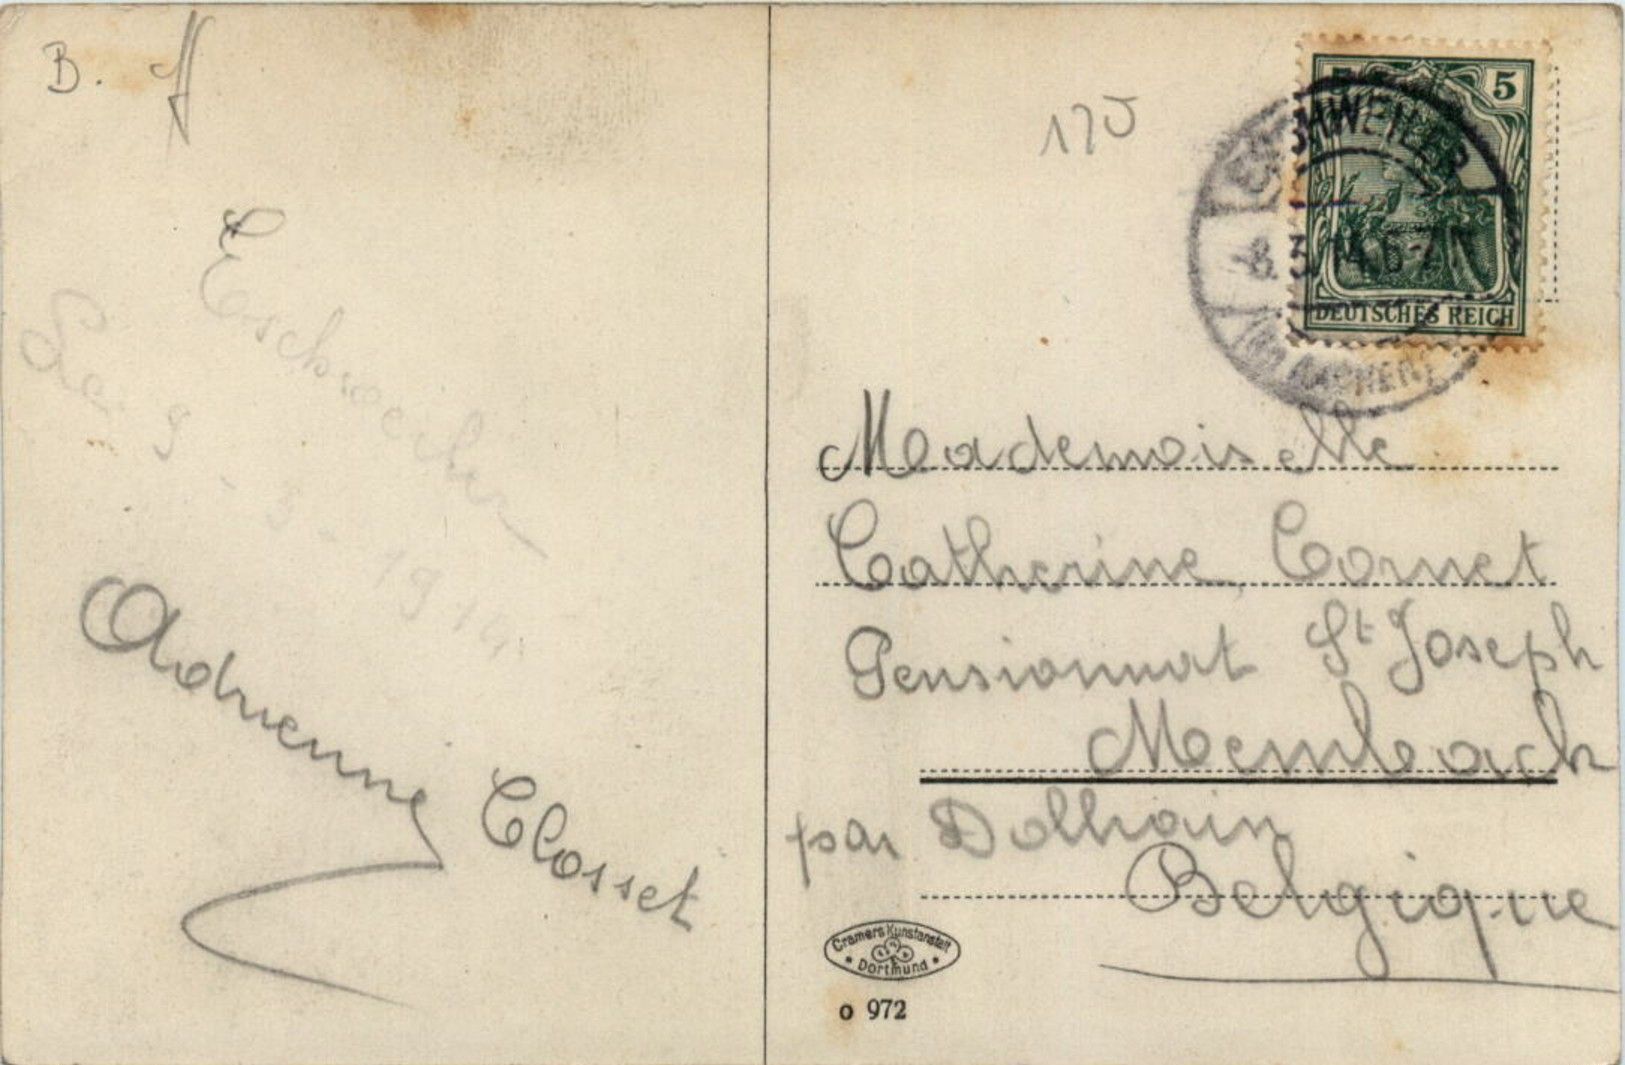 B.
Eschweiler
Le 9 - 3 - 1914
Adrienne Closset
5 5
DEUTSCHES REICH
ESCHWEILER
8.3.14.6-7
AACHEN
Mademoiselle
Catherine Cornet
Pensionnat St Joseph
Membach
par Dolhain
Belgique
Cramers Kunstanstalt
Dortmund
o 972